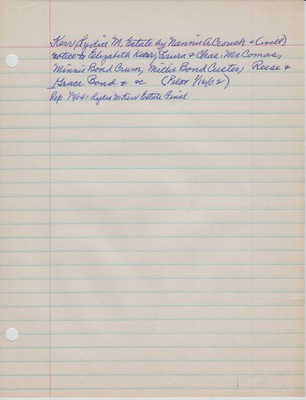 Kerr, Lydia M. Estate by Nannie A Crouch
notice to Elizabeth Kerr, Laura & Chas. McComas,
Minnie Bond Crum, Millie Bond Custer, Reese &
Grace Bond & &c
Rep. Lydia M Kerr Estate Final